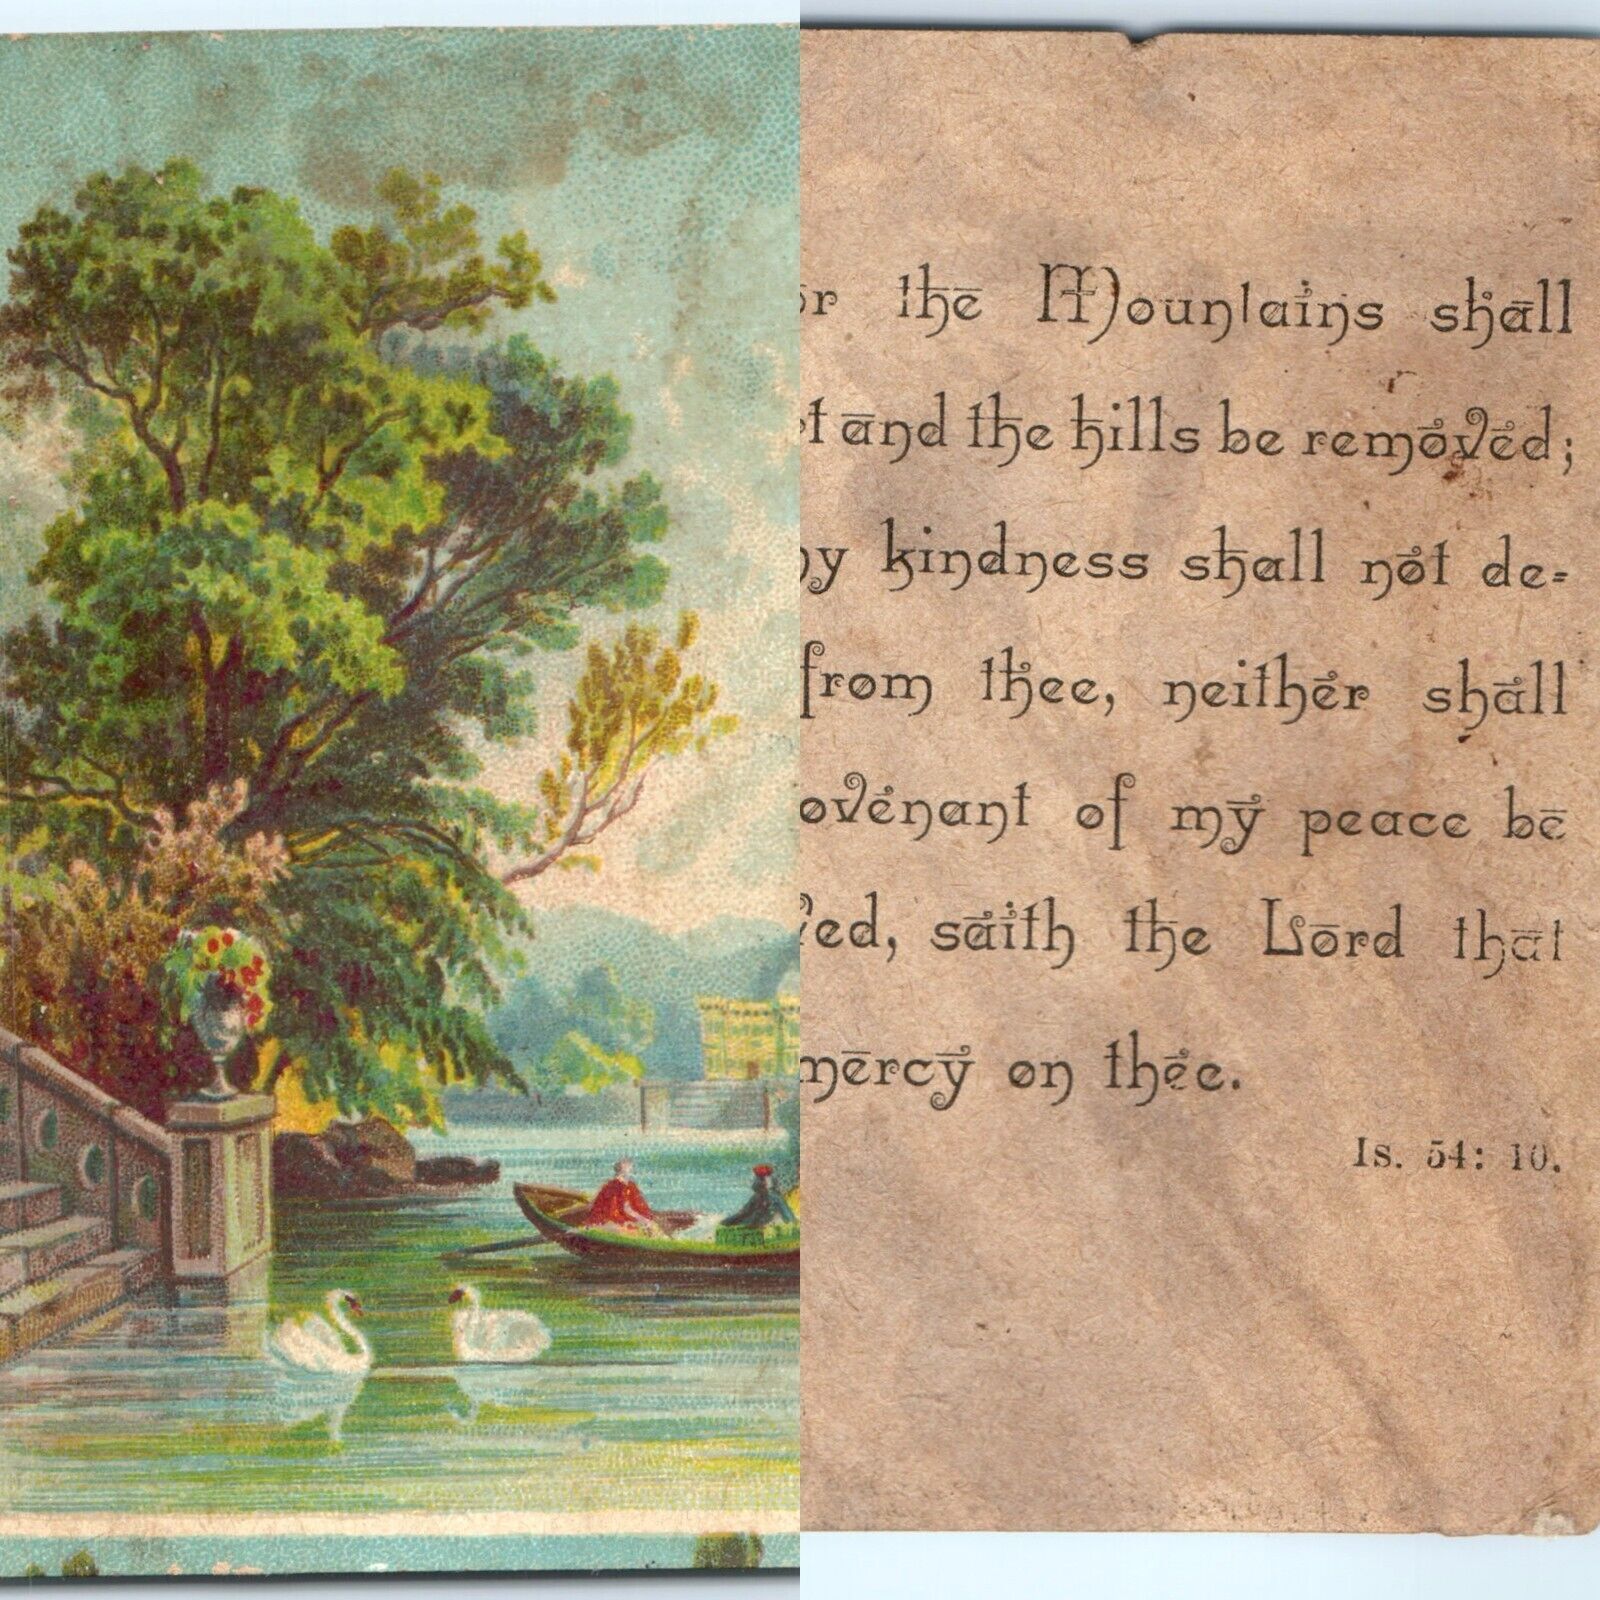 or the Mountains shall
t and the hills be removed;
y kindness shall not de=
from thee, neither shall
ovenant of my peace be
ed, saith the Lord that
mercy on thee.
Is. 54: 10.